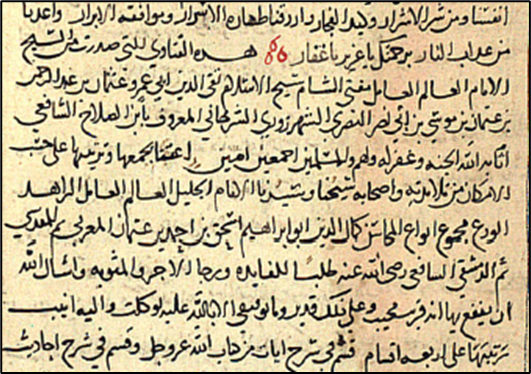 انفسنا ومن شر الاشرار وكيد الفجار وارزقنا طهارة الاسرار وموافقة الابرار واعذنا
من عذاب النار برحمتك يا عزيز يا غفار هذه الفتاوى التي صدرت من الشيخ
الامام العالم العامل مفتي الشام شيخ الاسلام تقي الدين ابي عمرو عثمان بن عبد الرحمن
بن عثمان بن موسى بن ابي نصر النصري الشهرزوري الشرخاني المعروف بابن الصلاح الشافعي
اثابه الله الجنة وغفر له ولهم وللمسلمين اجمعين امين اعتنا بجمعها وترتيبها على حسب
الامكان من تلامذته واصحابه شيخنا وسيدنا الامام الجليل العالم العامل الزاهد
الورع مجموع انواع المحاسن كمال الدين ابو ابراهيم اسحق بن احمد بن عثمان المغربي ثم المقدسي
ثم الدمشقي الشافعي رضي الله عنه طلبا للفايدة ورجا الاجر والمثوبة واسال الله
ان ينفع بها انه قريب مجيب وعلى ذلك قدير وما توفيقي الا بالله عليه توكلت واليه انيب
رتبتها على اربعة اقسام قسم في شرح ايات من كتاب الله عز وجل وقسم في شرح احاديث